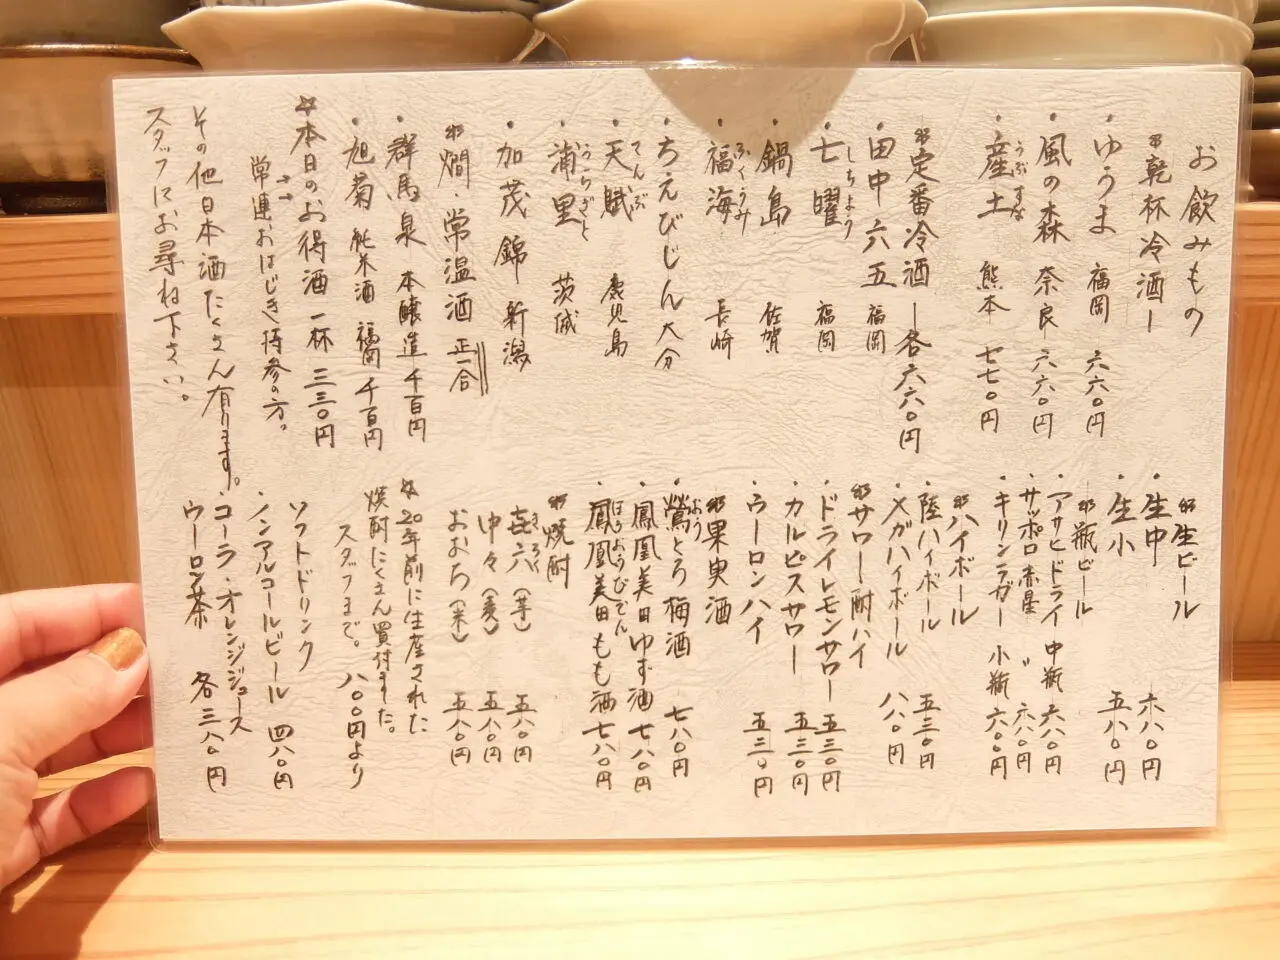 お飲みもの
乾杯冷酒ー
・ゆうま 福岡 六六〇円
・風の森 奈良 六六〇円
・産土 熊本 七七〇円
うぶすな
定番冷酒ー各六六〇円
・田中六五 福岡
・七曜 福岡
しちよう
・鍋島 佐賀
・福海 長崎
ふくうみ
・ちえびじん 大分
・天賦 鹿児島
てんぶ
・浦里 茨城
うらざと
・加茂錦 新潟
燗・常温酒 正一合
・群馬泉 本醸造 千百円
・旭菊 純米酒 福岡 千百円
☆本日のお得酒 一杯 三三〇円
→常連おはじき→持参の方。
その他日本酒たくさん有ります。
スタッフにお尋ね下さい。
生ビール
・生中 六八〇円
・生小 五八〇円
瓶ビール
・アサヒドライ 中瓶 六八〇円
・サッポロ赤星 〃 六八〇円
・キリンラガー 小瓶 六〇〇円
ハイボール
・陸ハイボール 五三〇円
・メガハイボール 八八〇円
サワー酎ハイ
・ドライレモンサワー 五三〇円
・カルピスサワー 五三〇円
・ウーロンハイ 五三〇円
果実酒
・鶯とろ梅酒 七八〇円
おう
・鳳凰美田ゆず酒 七八〇円
・鳳凰美田もも酒 七八〇円
ほうおうびでん
焼酎
・㐂六（芋） 五八〇円
きろく
・中々（麦） 五八〇円
・おおち（米） 五八〇円
☆20年前に生産された
焼酎たくさん買付ました。
スタッフまで。 八〇〇円より
ソフトドリンク
・ノンアルコールビール 四八〇円
・コーラ・オレンジジュース
ウーロン茶 各三八〇円